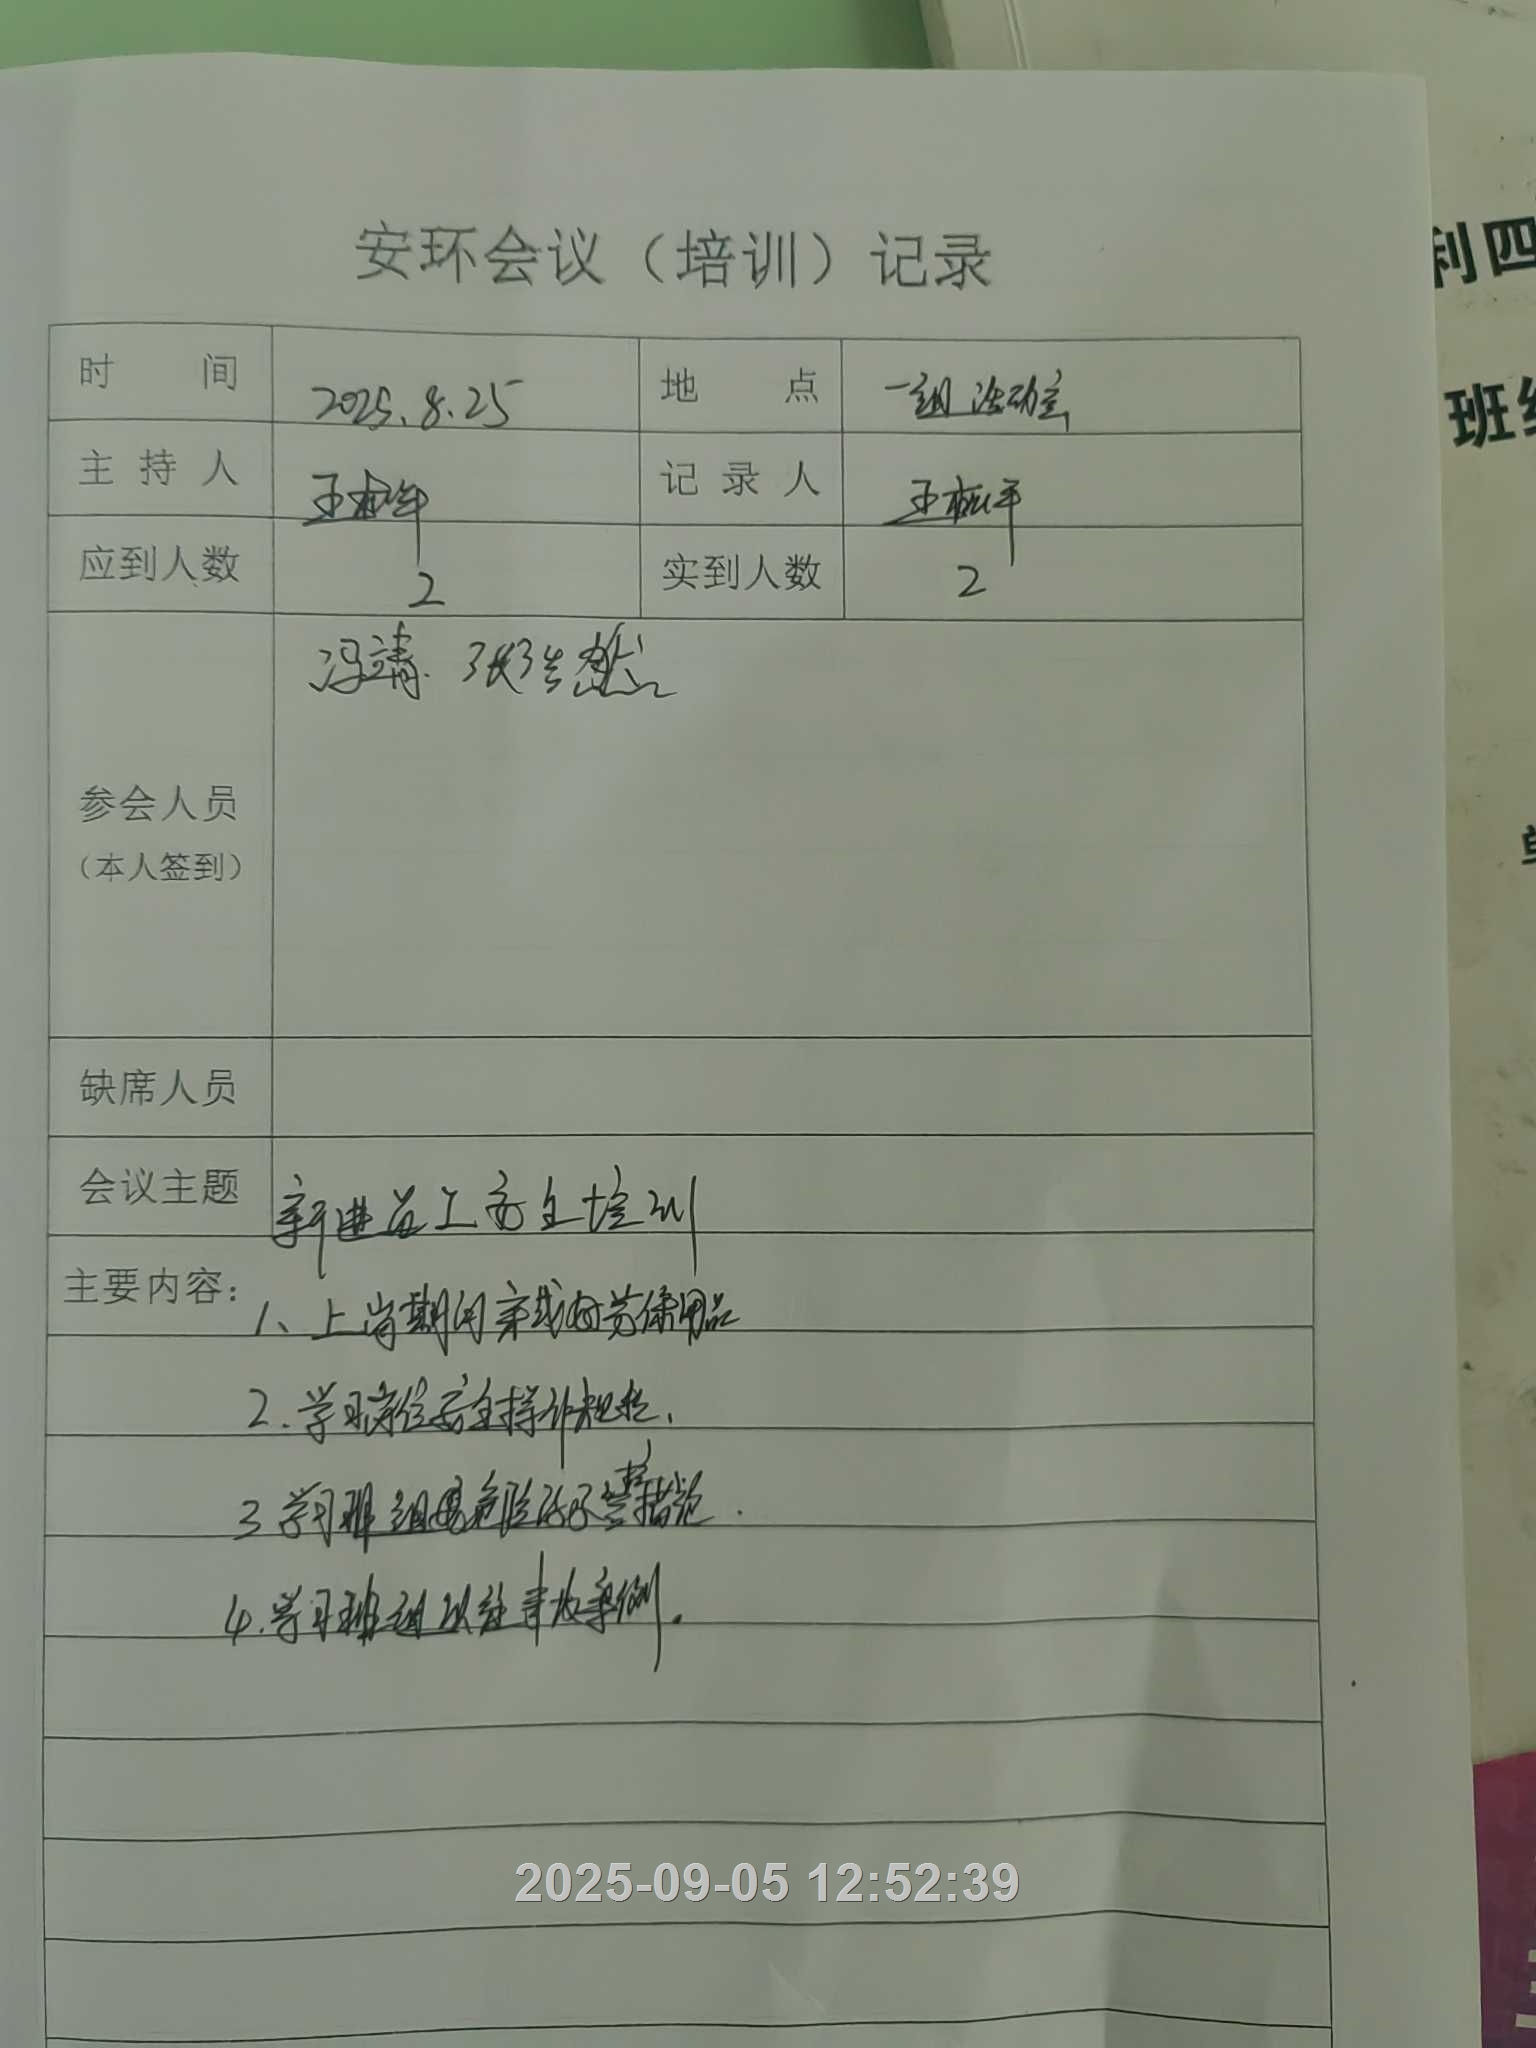 安环会议（培训）记录
时 间 2025.8.25 地 点 一组活动室
主持人 王 记录人 王
应到人数 2 实到人数 2
参会人员
（本人签到）
冯靖
缺席人员
会议主题 新进员工安全培训
主要内容：
1、上岗期间穿戴好劳保用品
2.学习岗位安全操作规程.
3 学习班组危险
4.学习班组以往事故案例.
利四
班组
2025-09-05 12:52:39